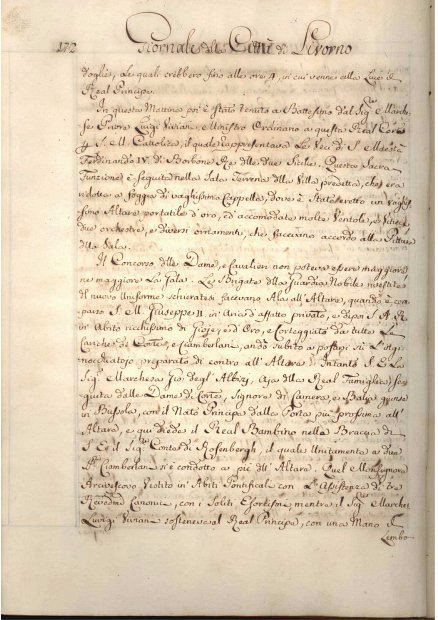 172 Giornale della Città di Livorno
doglie, le quali crebbero fino alle ore 4, in cui venne alla Luce il
Real Principe.
In questa Mattina poi è Stato tenuto a Battesimo dal Sig.e March-
se Luigi Viviani, Ministro Ordinario a questa Real Corte
S. M. Cattolica, il quale rappresentava Le Veci di S. Maestà
Ferdinando IV. di Borbone Re delle due Sicilie. Questa Sacra
Funzione è seguita nella Sala Terrena della Villa predetta, che era
ridotta a foggia di vaghissima Cappella, dove è Stato eretto un Vaghis-
simo Altare portatile d'oro, ed accomodate molte Ventole,
due orchestre, e diversi ornamenti, che facevano accordo alle Pitture
della Sala.
Il Concorso delle Dame, e Cavalieri non poteva essere maggiore,
ne maggiore La Gala. La Brigata della Guardia Nobile investita
del nuovo Uniforme schierata facevano Ala all'Altare, quando è com-
parso S. M. Giuseppe II. in Aria d'affatto privato, e dipoi S. A. R.
in Abito ricchissimo di Gioje, ed Oro, e Corteggiato da tutte Le
Cariche di Corte, e Ciamberlani, andò subito a posarsi sù L'Ingi-
nocchiatojo preparato di contro all'Altare. Intanto S. E. La
Sig.ra Marchesa Gio: degl'Albizj, Aja della Real Famiglia, se-
guita dalle Dame di Corte, Signore di Camera, e Balia, giunse
in Bussola, con il Nato Principe dalla Porta più prossima all'
Altare, e qui diede il Real Bambino nelle Braccia di
S. E. il Sig.e Conte di Rosenbergh, il quale Unitamente a due
Ciamberlani si è condotto a piè dell'Altare. Quel Monsignore
Arcivescovo Vestito in Abiti Pontificali con L'Assistenza di tre
Canonici, con i Soliti Esorcismi, mentre il Sig.e Marche.
Luigi Viviani sosteneva al Real Principe, con una Mano il
Lembo